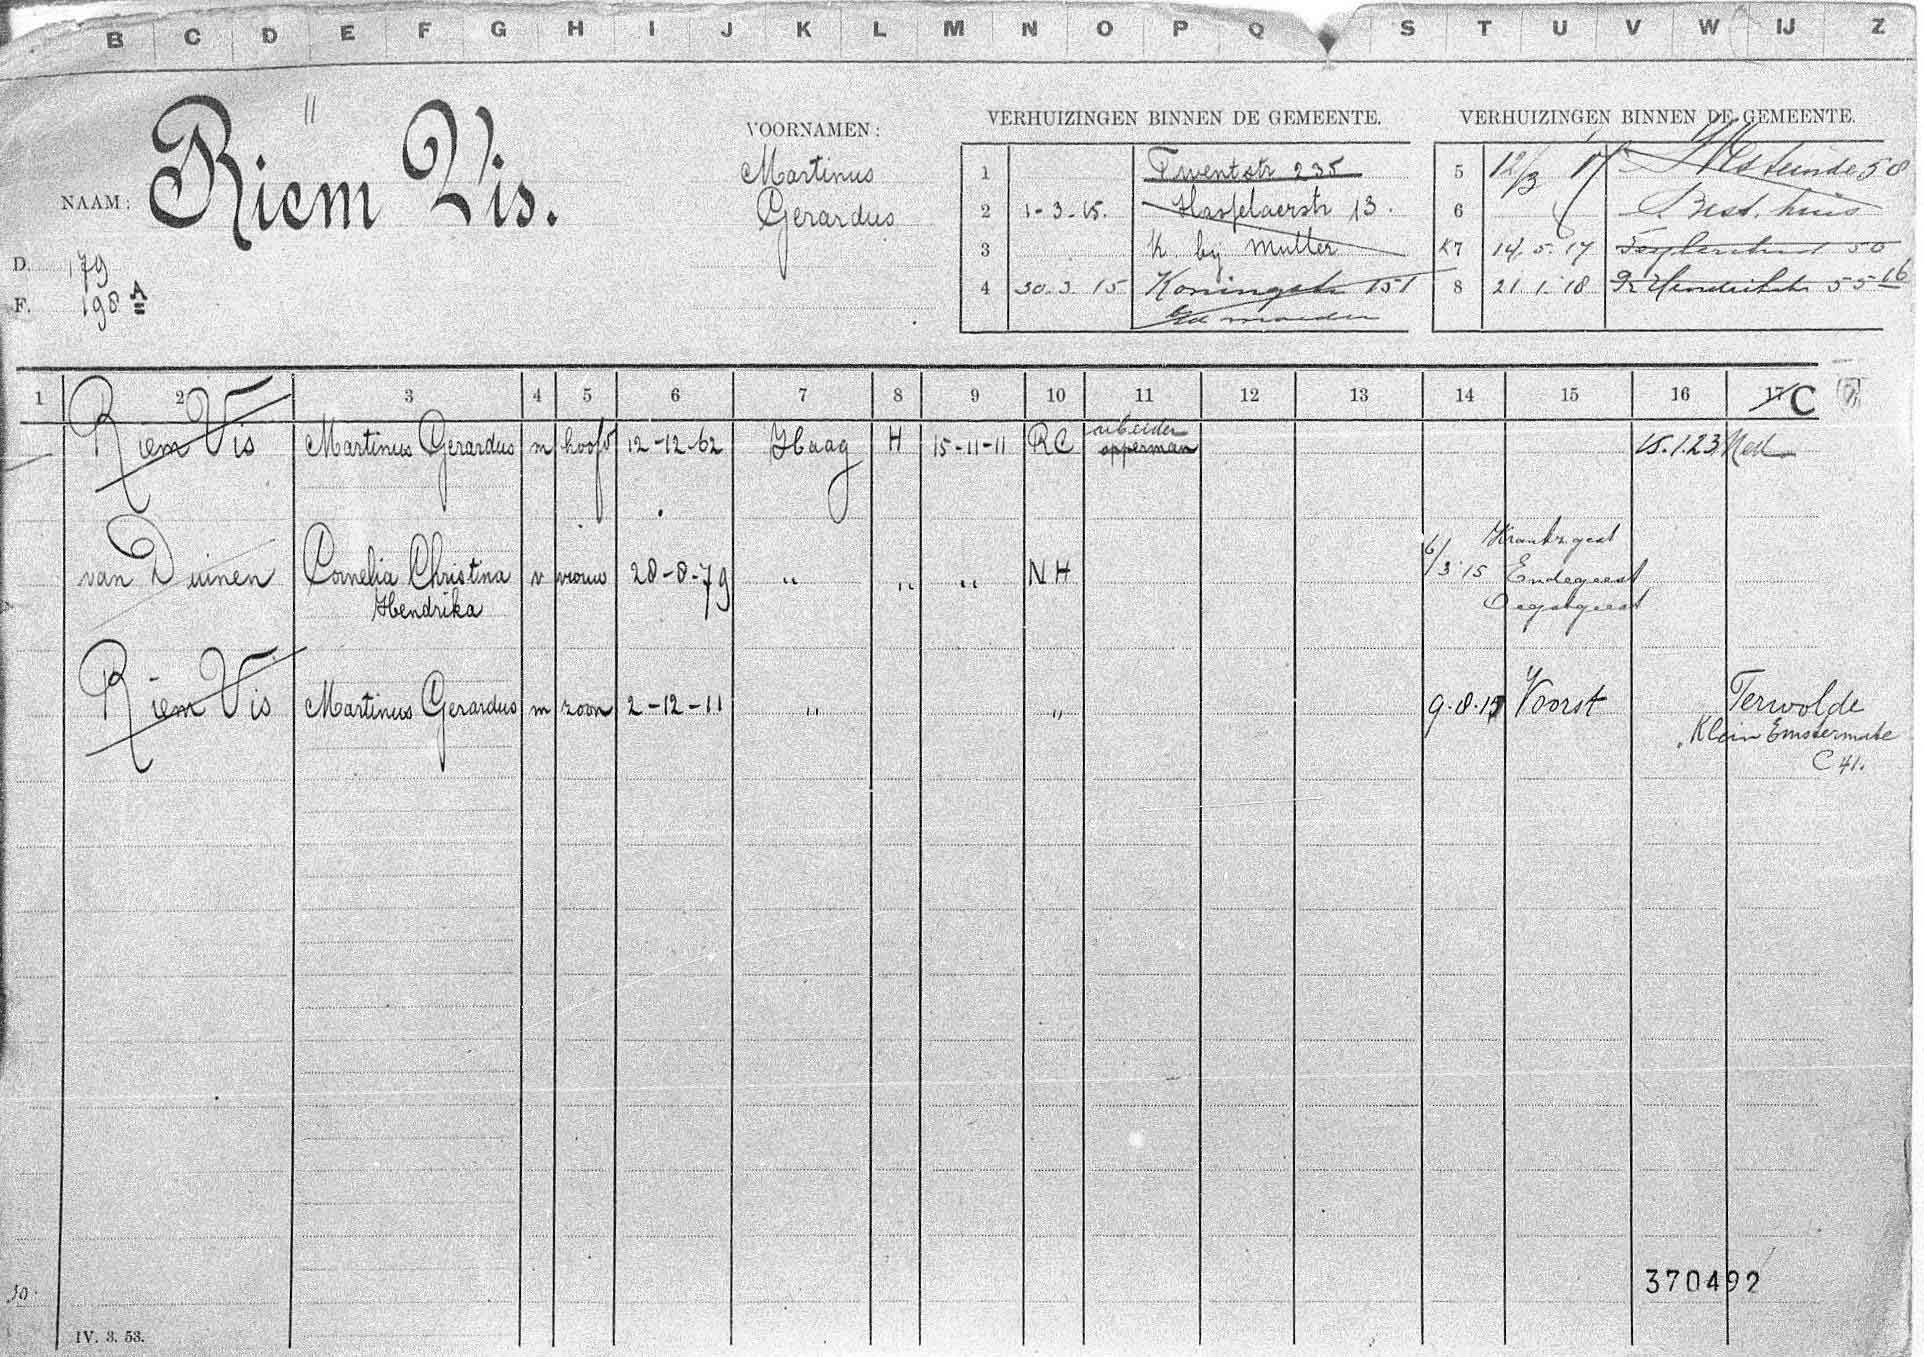 B C D E F G H I J K L M N O P Q S T U V W IJ Z
NAAM: Riem Vis.
D. 179
F. 198 A
VOORNAMEN:
Martinus
Gerardus
VERHUIZINGEN BINNEN DE GEMEENTE.
1 Twentstr 235
2 1-3.15. Hasselaerstr 13.
3 K. bij Muller
4 30.3.15 Koningstr 151
moeder
VERHUIZINGEN BINNEN DE GEMEENTE.
5 12/3 17 Westeinde 58
6 Best. huis
K7 14.5.17 50
8 21.1.18 Pr Hendrikstr 55 16
1 2 3 4 5 6 7 8 9 10 11 12 13 14 15 16 17 C
Riem Vis Martinus Gerardus m hoofd 12-12-62 Haag H 15-11-11 RC arbeider 15.1.23 Ned
opperman
van Duinen Cornelia Christina v vrouw 28-8-79 " " " NH 6/3 15 Krankz. gest
Hendrika Endegeest
Oegstgeest
Riem Vis Martinus Gerardus m zoon 2-12-11 " " 9.8.15 Voorst Terwolde
Klein Emstermate
C 41.
370492
30.
IV. 3. 53.